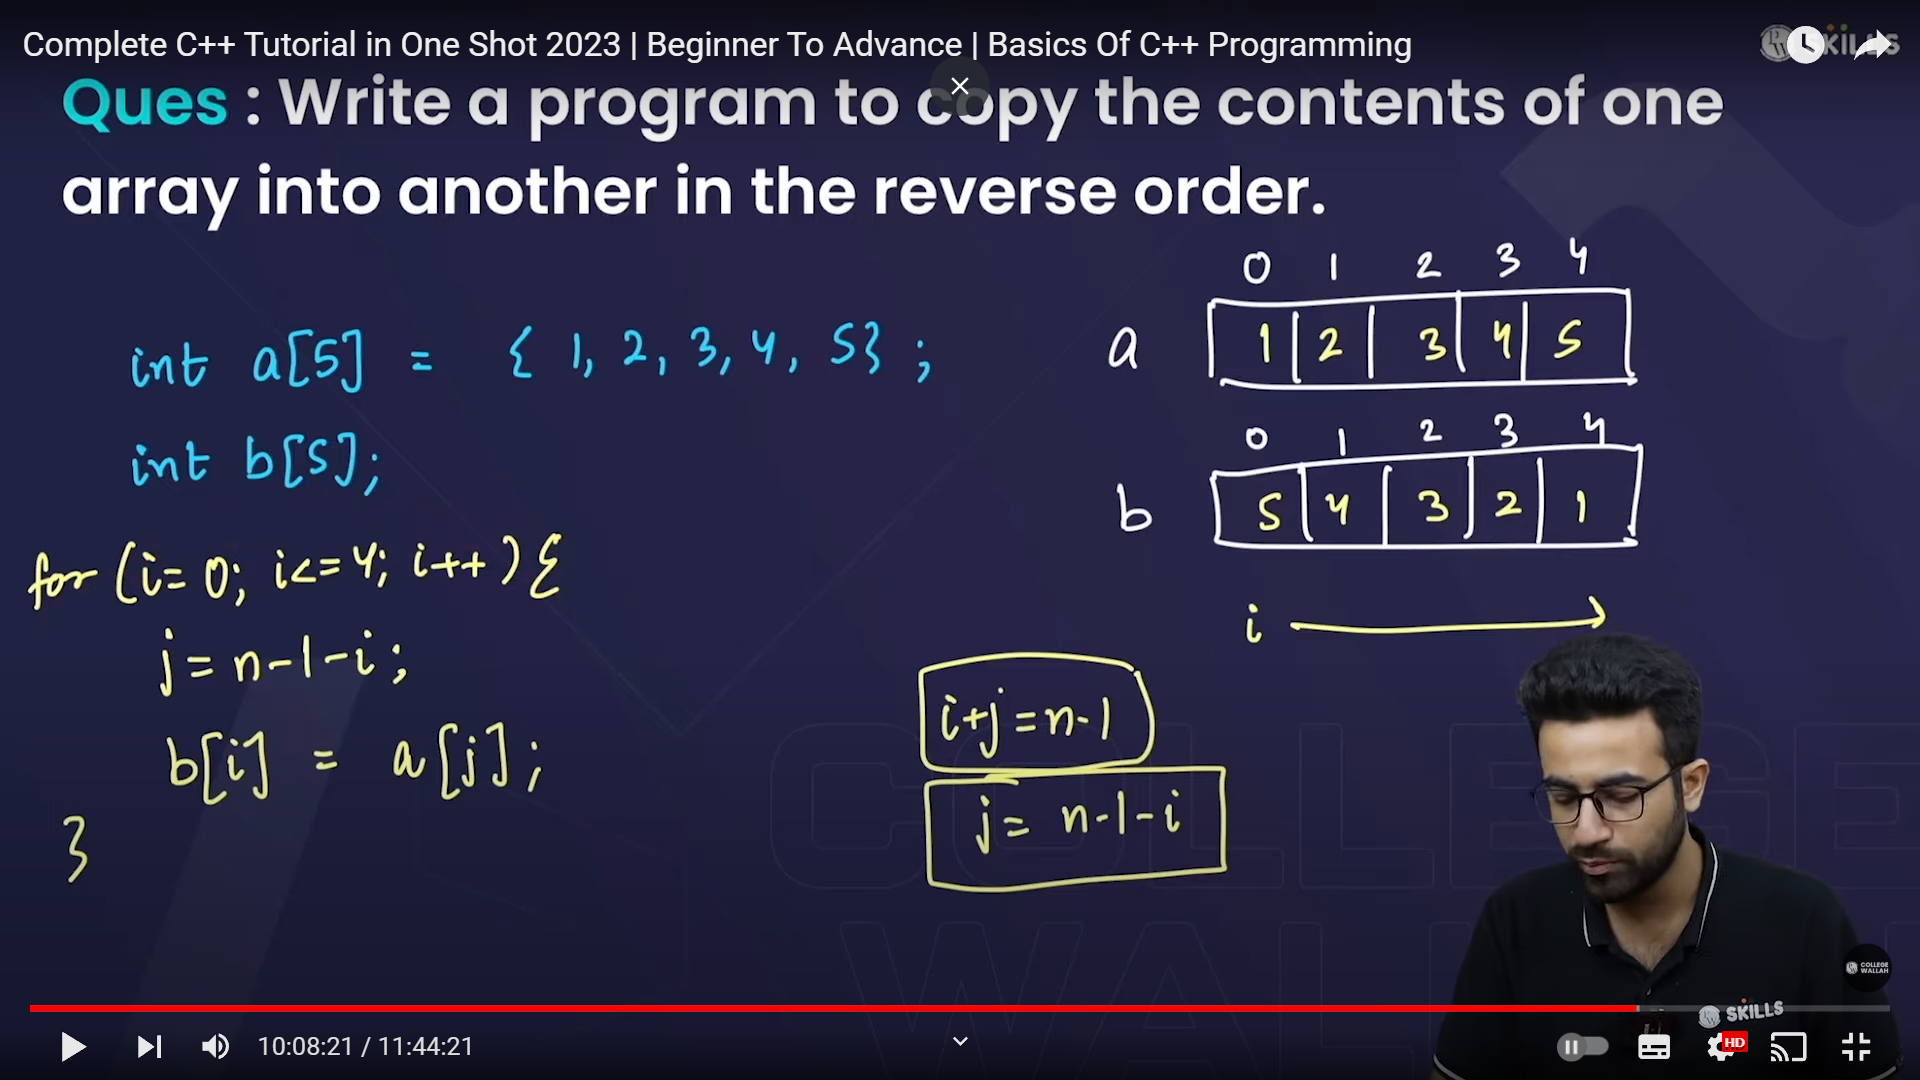 Complete C++ Tutorial in One Shot 2023 | Beginner To Advance | Basics Of C++ Programming
SKILLS
Ques : Write a program to copy the contents of one
array into another in the reverse order.
int a[5] = { 1, 2, 3, 4, 5} ;
int b[5];
for (i= 0; i<= 4; i++ ) {
j = n-1-i ;
b[i] = a[j] ;
}
0 1 2 3 4
a 1 2 3 4 5
0 1 2 3 4
b 5 4 3 2 1
i
i+j = n-1
j = n-1-i
COLLEGE
WALLAH
COLLEGE
WALLAH
SKILLS
10:08:21 / 11:44:21
HD